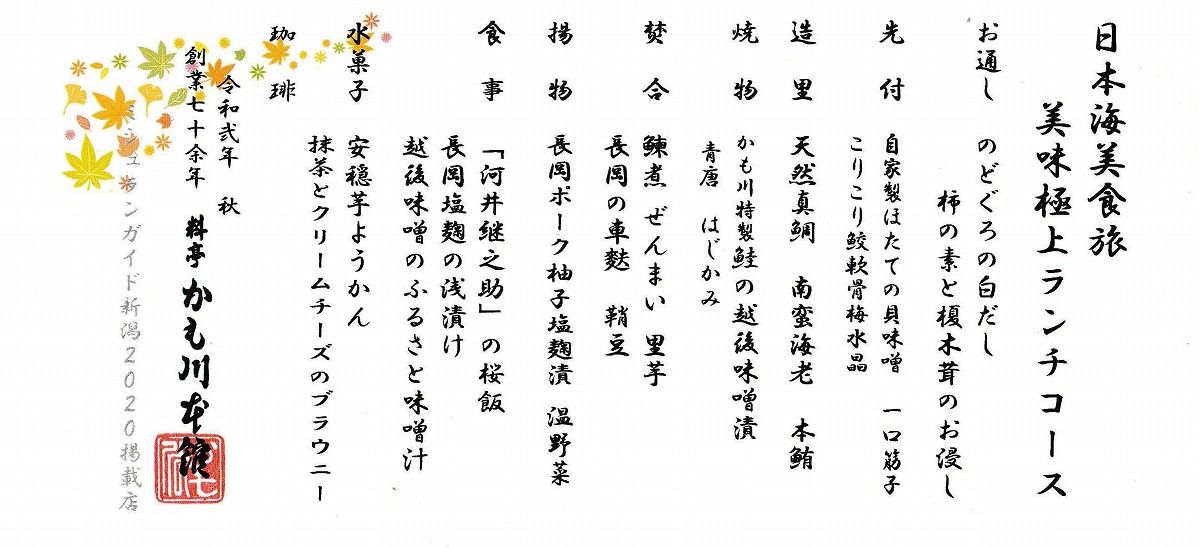 日本海美食旅
美味極上ランチコース
お通し　のどぐろの白だし
柿の素と榎木茸のお浸し
先付　自家製ほたての貝味噌　一口筋子
こりこり鮫軟骨梅水晶
造里　天然真鯛　南蛮海老　本鮪
焼物　かも川特製鮭の越後味噌漬
青唐　はじかみ
焚合　鰊煮　ぜんまい　里芋
長岡の車麩　鞘豆
揚物　長岡ポーク柚子塩麹漬　温野菜
食事　「河井継之助」の桜飯
長岡塩麹の浅漬け
越後味噌のふるさと味噌汁
水菓子　安穏芋ようかん
抹茶とクリームチーズのブラウニー
珈琲
令和弐年　秋
創業七十余年　料亭かも川本館
ミシュランガイド新潟2020掲載店